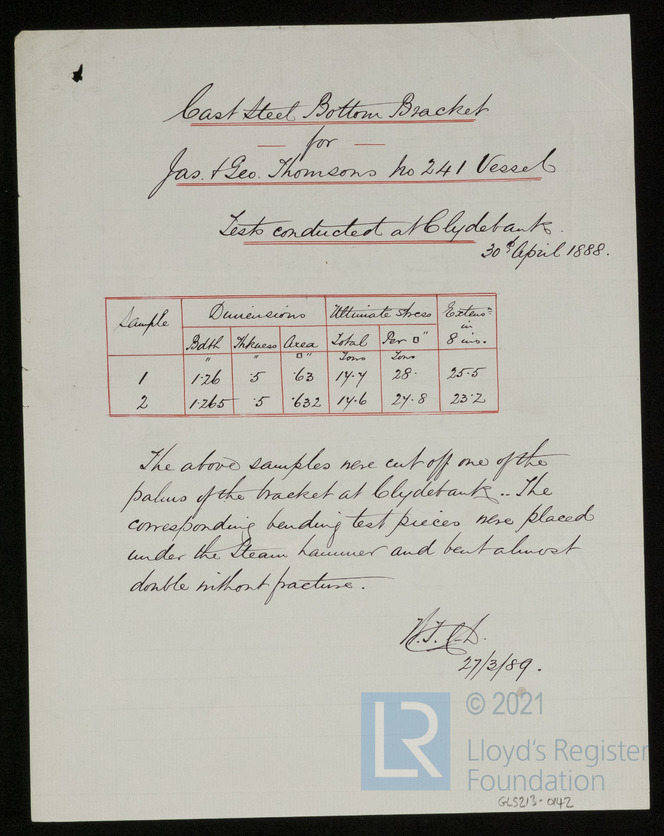 Cast Steel Bottom Bracket
— for —
Jas. & Geo. Thomsons No 241 Vessel
Tests conducted at Clydebank.
30th April 1888.
Sample Dimensions Ultimate Stress Extensn in 8 ins.
Bdth Thkness Area Total Per □"
" " □" Tons Tons
1 1·26 ·5 ·63 17·7 28· 25·5
2 1·265 ·5 ·632 17·6 27·8 23·2
The above samples were cut off one of the
palms of the bracket at Clydebank.. The
corresponding bending test pieces were placed
under the Steam hammer and bent almost
double without fracture.
27/3/89.
LR
© 2021
Lloyd's Register
Foundation
GLS213-0142